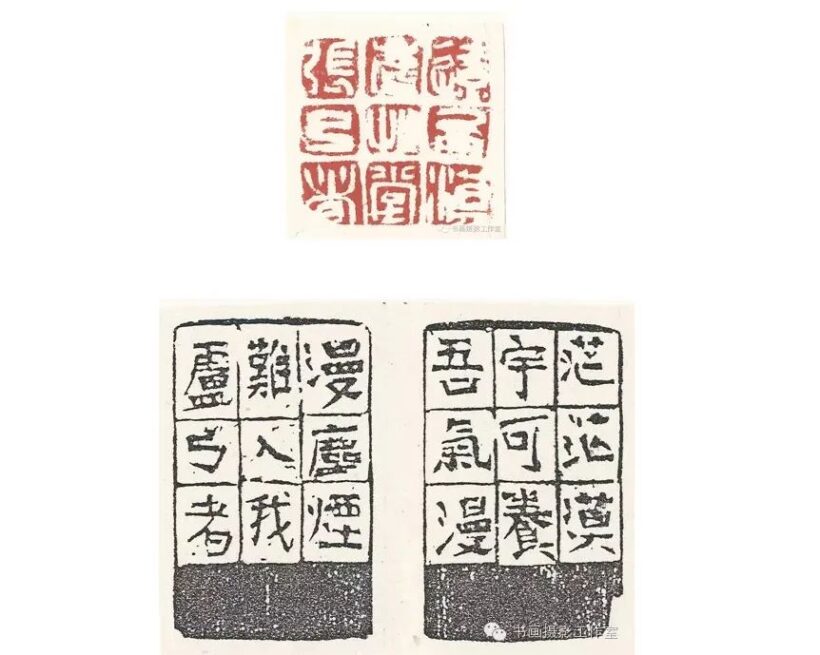 之堂
張弓者
书画摄影工作室
茫茫漠
宇可養
吾氣漫
漫塵煙
難入我
盧弓者
书画摄影工作室